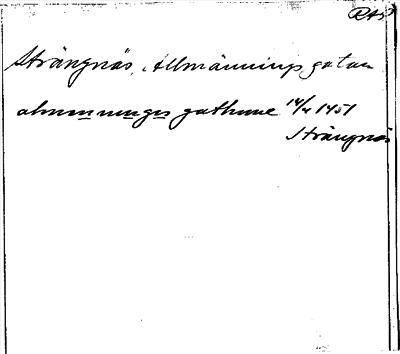 RAp
Strängnäs, Allmänningsgatan
almenninges gathune 14/4 1451
Strängnäs